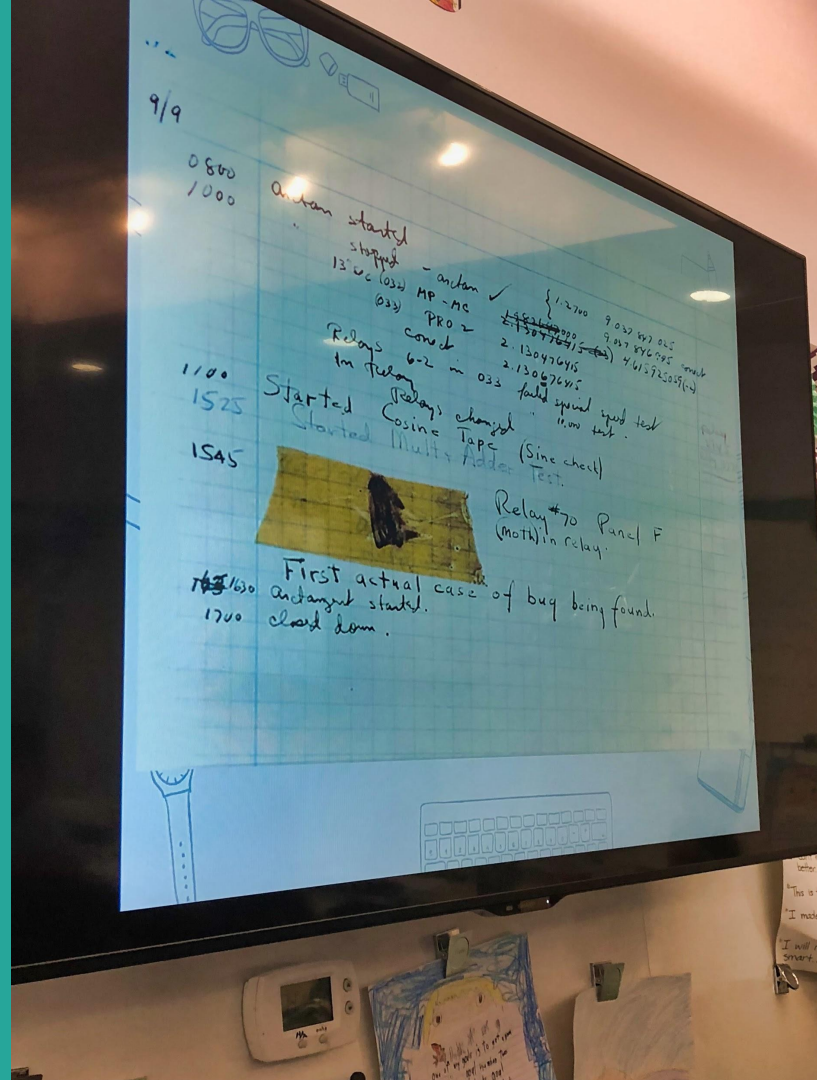 9/9
0800 arctan started
1000 " stopped - arctan ✓ { 1.2700 9.037 847 025
9.037 846 995 correct
13"uc (032) MP-MC 4.615925059(-2)
(033) PRO 2 2.130476415
correct 2.130676415
Relays 6-2 in 033 failed special speed test
In relay " 10,000 test.
Relays changed
1100 Started Cosine Tape (Sine check)
1525 Started Mult + Adder Test.
1545 Relay #70 Panel F
(moth) in relay.
First actual case of bug being found.
1630 arctangent started.
1700 closed down.
better
"This is
"I made
"I will
smart.